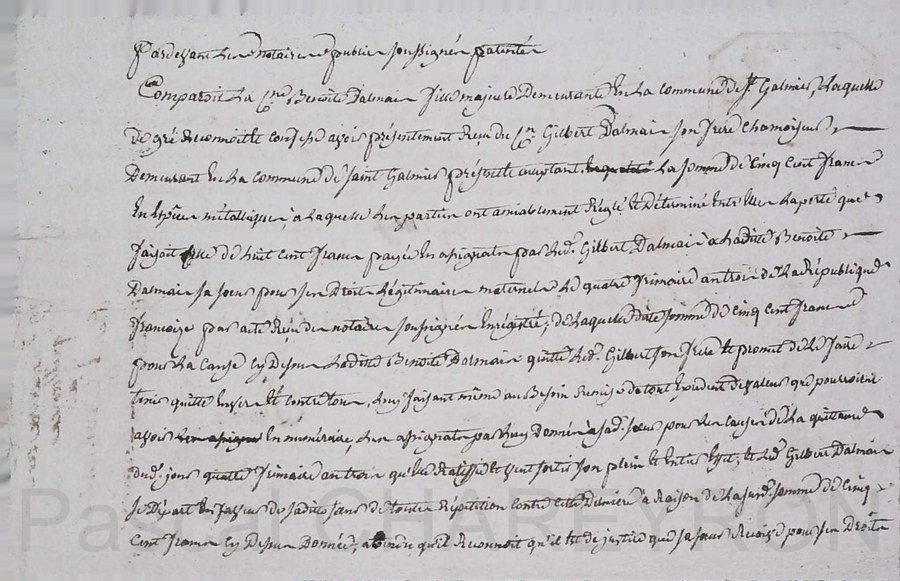 Pardevant les notaires publics soussignés patentés
Comparoit La Cne Benoite Dalmais fille majeure Demeurante En La commune de St Galmier, Laquelle
de gré Reconnoit et confesse avoir présentement Reçu du Cn Gilbert Dalmais son frère chamoiseur
Demeurant En La commune de Saint Galmier présent et acceptant La somme de Cinq Cent francs
En Espèces métalliques à Laquelle Les parties ont amiablement Réglé et Déterminé Entre Elles La perte que
faisoit celle de huit Cent francs payée En assignats par Led. Gilbert Dalmais à Ladite Benoite
Dalmais sa soeur pour ses Droits Légitimaires maternels Le quatre frimaire an trois de La République
françoise par acte Reçu des notaires soussignés Enregistré; de Laquelle dite somme de Cinq Cent francs
pour La Cause Cy Dessus Ladite Benoite Dalmais quitte Led. Gilbert son frère Et promet de Le faire
tenir quitte Envers Et contre tous, Luy faisant même au Besoin Remise de tout Excédent de valeur que pourroient
avoir En numéraire, Les assignats par Luy Donnés à sad. soeur pour Les causes de La quittance
dud. jour quatre frimaire an trois qu'elle Ratiffie Et veut sortir son plein Et Entier Effet; Et Led. Gilbert Dalmais
se Départ En faveur de sadite soeur de toute Répétition Contre Cette Dernière à Raison de La susd. somme de Cinq
Cent francs Cy Dessus Donnée, attendu qu'il Reconnoit qu'il Est de justice que sa soeur Reçoive pour ses Droits
Pascal CHAREYRON